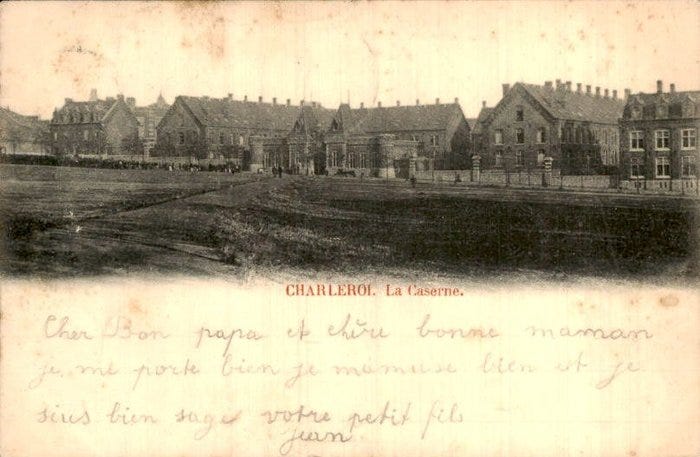 CHARLEROI. La Caserne.
Cher Bon papa et chère bonne maman
je me porte bien je mamuse bien et je
suis bien sage votre petit fils
jean